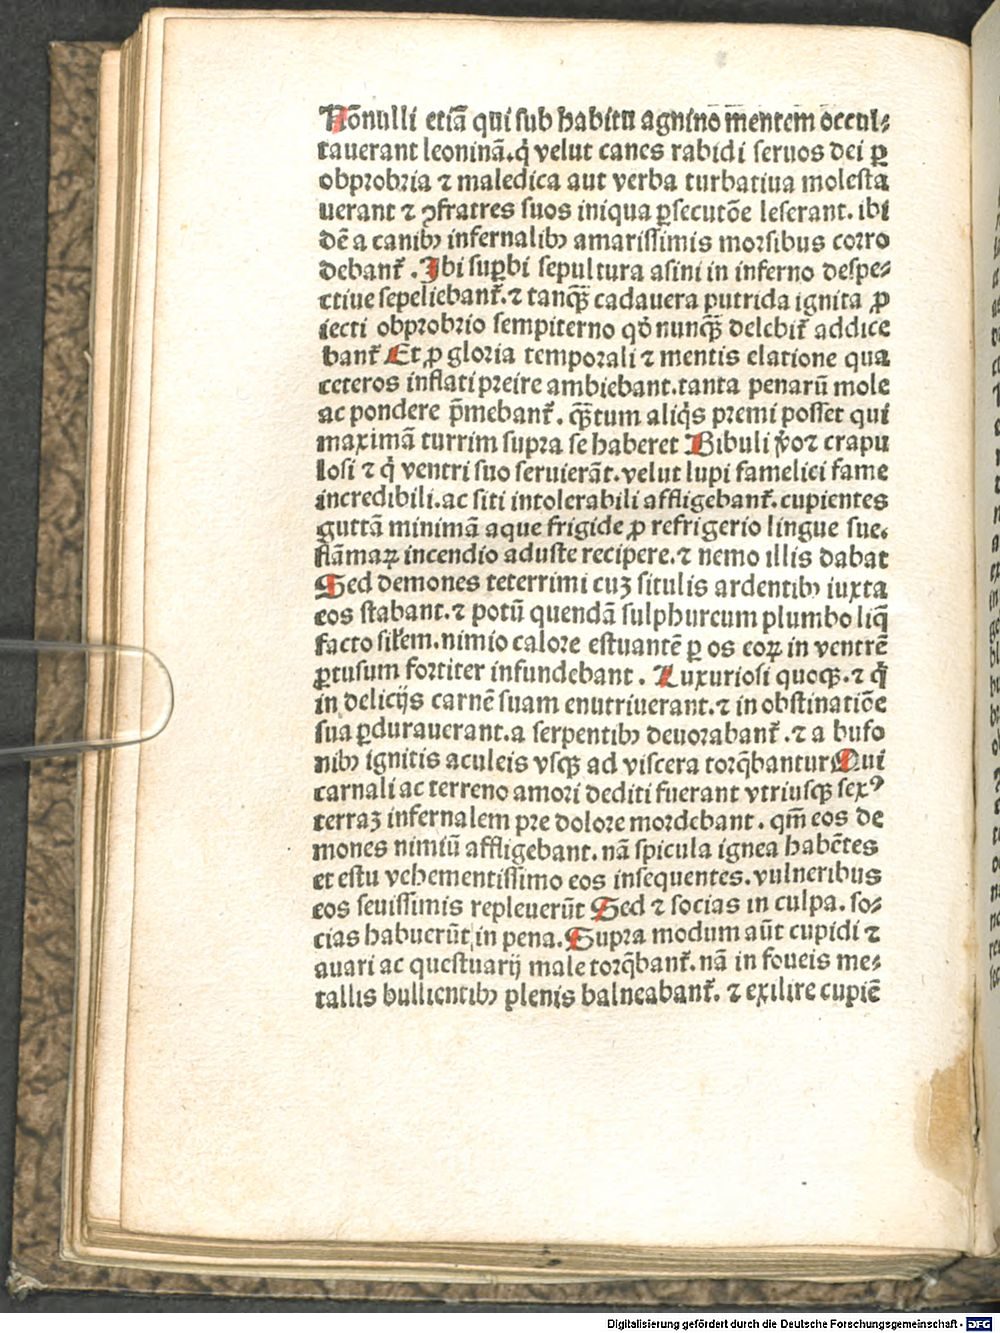 Nōnulli etiā qui sub habitu agnino mentem occul⸗
tauerant leoninā. q̇ velut canes rabidi seruos dei ꝑ
obprobria ⁊ maledica aut verba turbatiua molesta
uerant ⁊ ꝯfratres suos iniqua ꝑsecutōe leserant. ibi
dē a canibꝰ infernalibꝰ amarissimis morsibus corro
debant᷑. Ibi suꝑbi sepultura asini in inferno despe⸗
ctiue sepeliebant᷑. ⁊ tanqꝫ̄ cadauera putrida ignita ꝓ
iecti obprobrio sempiterno qđ nunqꝫ̄ delebit᷑ addice
bant᷑ Et ꝓ gloria temporali ⁊ mentis elatione qua
ceteros inflati preire ambiebant. tanta penarū mole
ac pondere p̄mebant᷑. qꝫ̄tum aliq̇s premi posset qui
maximā turrim supra se haberet Bibuli v̓oꝛ crapu
losi ⁊ q̇ ventri suo seruierāt. velut lupi famelici fame
incredibili. ac siti intolerabili affligebant᷑. cupientes
guttā minimā aque frigide ꝓ refrigerio lingue sue.
flāmaꝝ incendio aduste recipere. ⁊ nemo illis dabat
Sed demones teterrimi cuꝫ situlis ardentibꝰ iuxta
eos stabant. ⁊ potū quendā sulphureum plumbo liq̄
facto sil᷑em. nimio calore estuantē ꝑ os eoꝝ in ventrē
ꝑtusum fortiter infundebant. Luxuriosi quoqꝫ. ⁊ q̇
in delicijs carnē suam enutriuerant. ⁊ in obstinatiōe
sua ꝑdurauerant. a serpentibꝰ deuorabant᷑. ⁊ a bufo
nibꝰ ignitis aculeis vsqꝫ ad viscera torq̄bantur Qui
carnali ac terreno amori dediti fuerant vtriusqꝫ sexꝰ
terraꝫ infernalem pre dolore mordebant. qm̄ eos de
mones nimiū affligebant. nā spicula ignea habētes
et estu vehementissimo eos insequentes. vulneribus
eos seuissimis repleuerūt Sed ⁊ socias in culpa. so⸗
cias habuerūt in pena. Supra modum aūt cupidi ⁊
auari ac questuarij male torq̄bant᷑. nā in foueis me⸗
tallis bullientibꝰ plenis balneabant᷑. ⁊ exilire cupiē
Digitalisierung gefördert durch die Deutsche Forschungsgemeinschaft - DFG